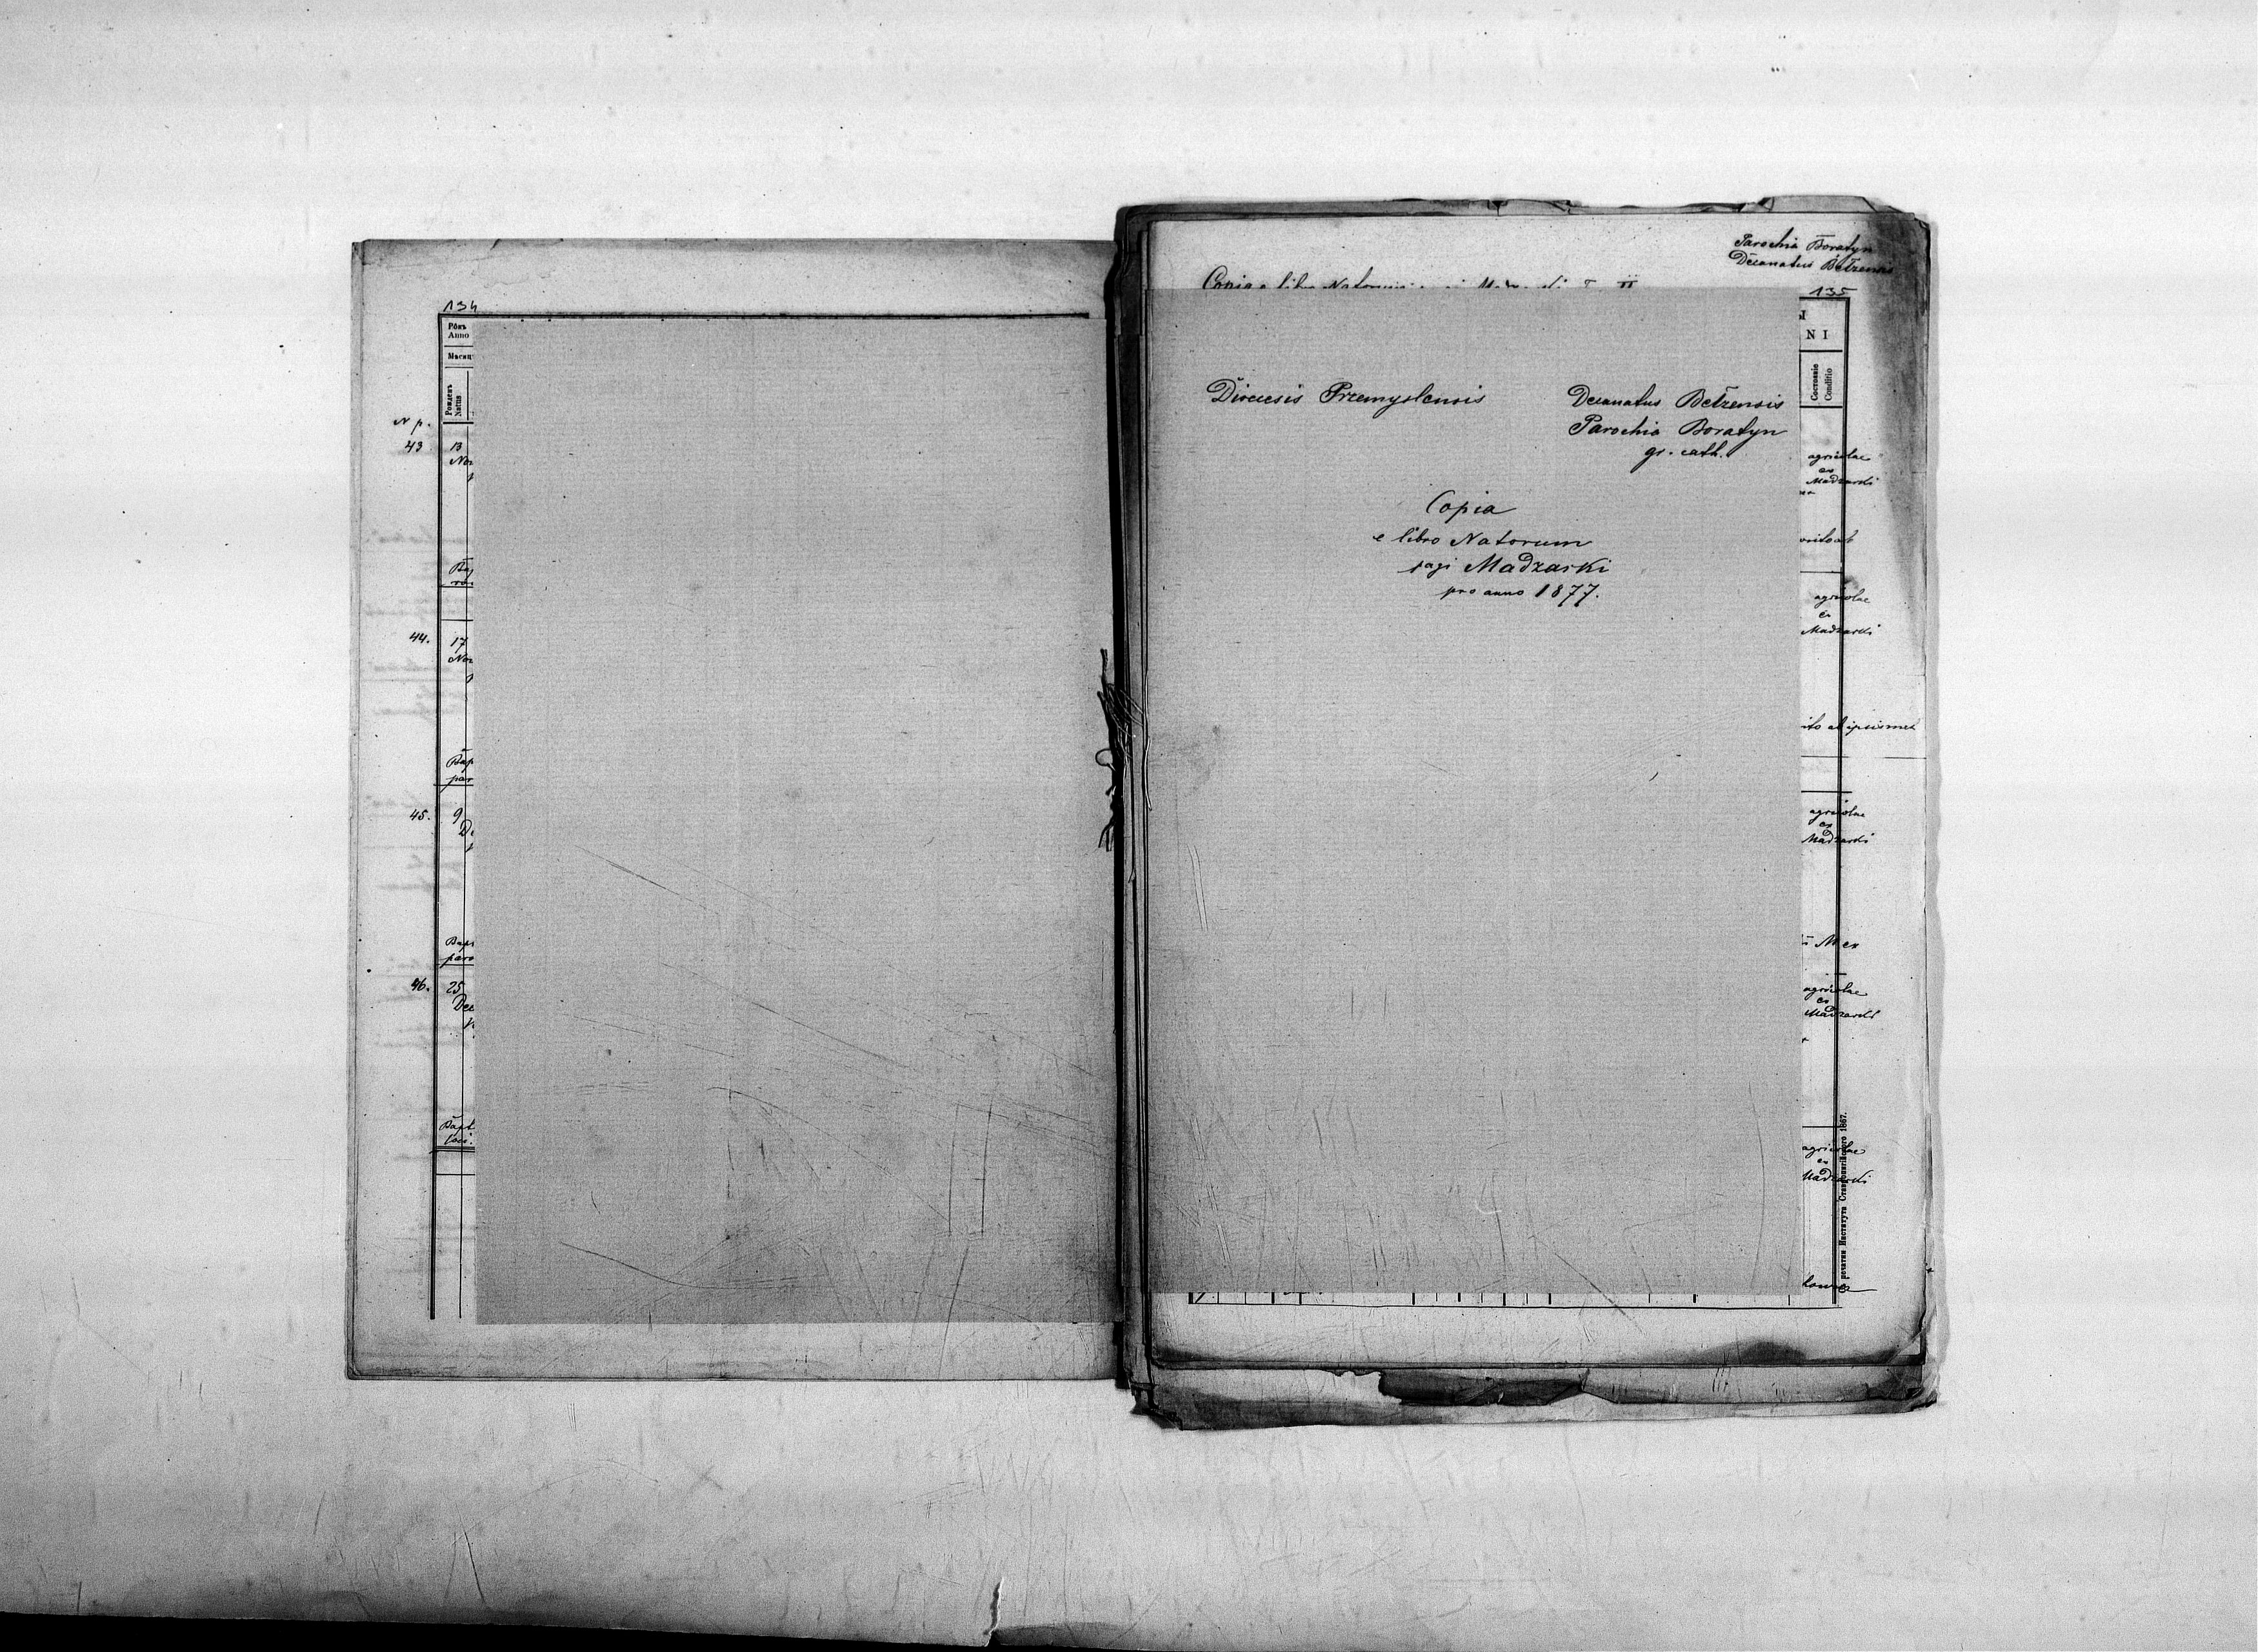 134
Рôкъ
Anno
Мѣсяц
Рожденъ
Natus
N p.
43
13
Nov
Bap
44.
17
Nov
Bap
par
45.
9
De
Bapt
paro
46.
25
Dec
Bapt
loci.
Parochia Boratyn
Decanatus Bełzensis
Copia e libro Natorum
135
Ы
NI
Состояніе
Conditio
Diocesis Przemyslensis
Decanatus Bełzensis
Parochia Boratyn
gr. cath.
Copia
e libro Natorum
pagi Madzarki
pro anno 1877.
agricolae
ex
Madzarki
agricolae
ex
Madzarki
ipsismet
agricolae
ex
Madzarki
agricolae
ex
Madzarki
agricolae
ex
Madzarki
печатни Института Ставропигійского 1867.